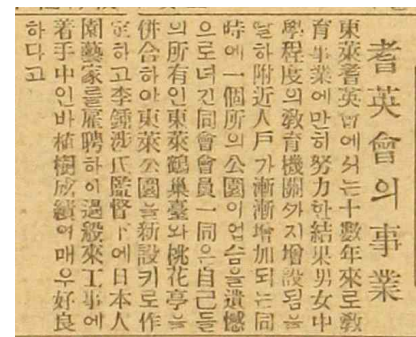 耆英會의事業
東萊耆英會에서는十數年來로敎
育事業에만히努力한結果男女中
學程度의敎育機關까지增設됨을
딸하附近人戶가漸漸增加되는同
時에一個所의公園이업슴을遺憾
으로녀긴同會會員一同은自己들
의所有인東萊鶴巢臺와桃花亭을
併合하야東萊公園을新設키로作
定하고李鍾涉氏監督下에日本人
園藝家를雇聘하야過般來工事에
着手中인바植樹成績이매우好良
하다고